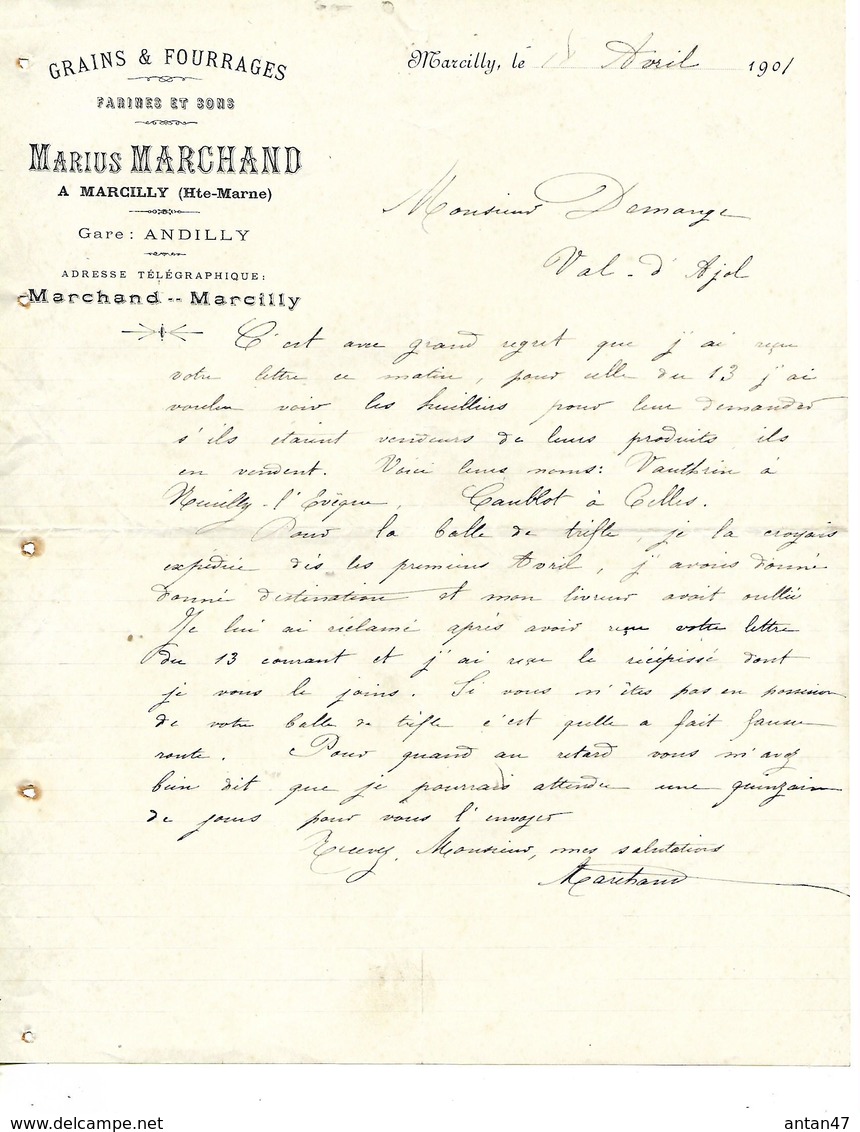 GRAINS & FOURRAGES
FARINES ET SONS
MARIUS MARCHAND
A MARCILLY (Hte-Marne)
Gare: ANDILLY
ADRESSE TÉLÉGRAPHIQUE:
Marchand -- Marcilly
Marcilly, le Avril 1901
Monsieur Demange
Val-d'Ajol
C'est avec grand regret que j'ai reçu
votre lettre ce matin, pour celle du 13 j'ai
voulu voir les huilliers pour leur demander
s'ils étaient vendeurs de leurs produits ils
en vendent. Voici leurs noms: Vauthrin à
Neuilly-l'Evêque, Caublot à Celles.
Pour la balle de trifle, je la croyais
expédiée dès les premiers Avril, j'avais donné
donné destination et mon livreur avait oublié
Je lui ai réclamé après avoir reçu votre lettre
du 13 courant et j'ai reçu le récépissé dont
je vous le joins. Si vous n'êtes pas en possession
de votre balle de trifle c'est qu'elle a fait fausse
route. Pour quand au retard vous m'avez
bien dit que je pourrais attendre une quinzaine
de jours pour vous l'envoyer
Recevez, Monsieur, mes salutations
Marchand
antan47